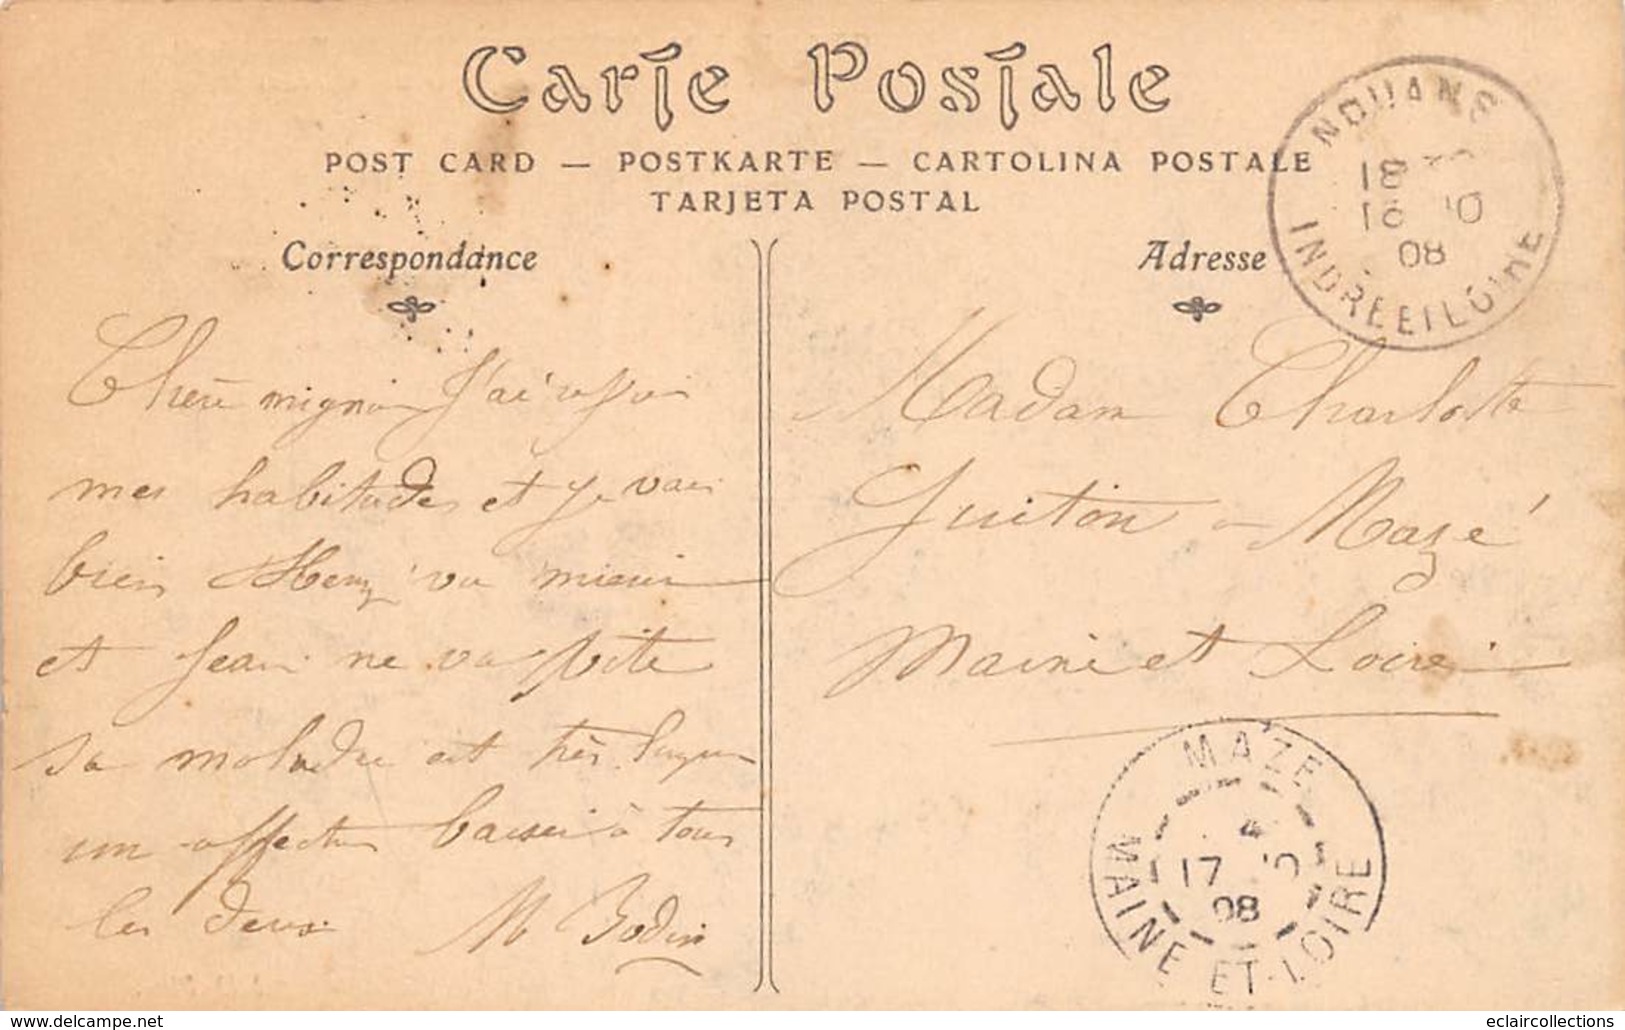 Carte Postale
POST CARD — POSTKARTE — CARTOLINA POSTALE
TARJETA POSTAL
Correspondance
Adresse
NOUANS
18
16 10
08
INDRE ET LOIRE
Chère mignon J'ai
mes habitudes et je vais
bien Henz va mieux
et Jean ne va vite
sa maladie est très
un affectueux baiser à tous
les deux M Bodin
Madam Charlotte
Guiton a Mazé
Maine et Loire
MAZÉ
4
17 10
08
MAINE ET LOIRE
www.delcampe.net
eclaircollections